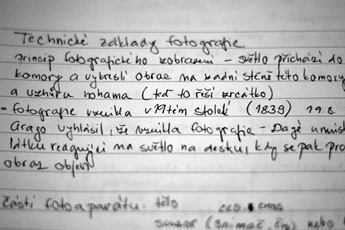 Technické základy fotografie
princip fotografického zobrazení - světlo přichází do
komory a vykreslí obraz na zadní stěně této komory
a vzhůru nohama (teď to řeší zrcátko)
- fotografie vznikla v 19tém století (1839) 19.8.
Arago vyhlásil, že vznikla fotografie - Dagé umístil
látku reagující na světlo na desku, kdy se pak pro
obraz objeví
části fotoaparátu: tělo
CCD, CMOS
senzor (snímač, čip) nebo